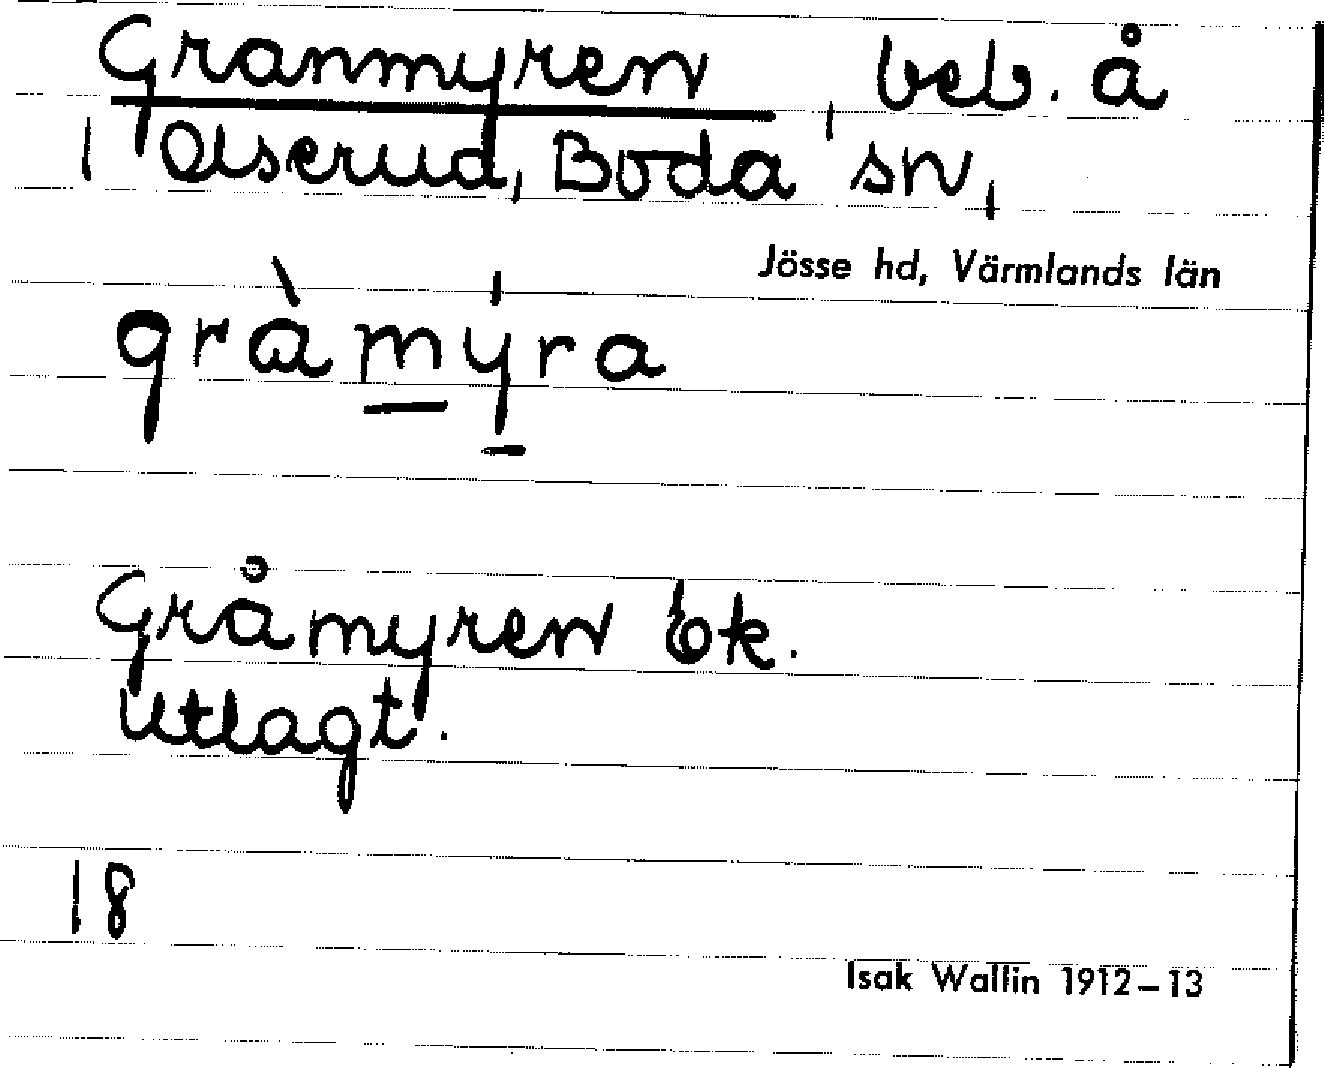 Granmyren, beb. å
1 Olserud, Boda sn,
Jösse hd, Värmlands län
gràmýra
Gråmyren Ek.
Utlagt.
18
Isak Wallin 1912–13